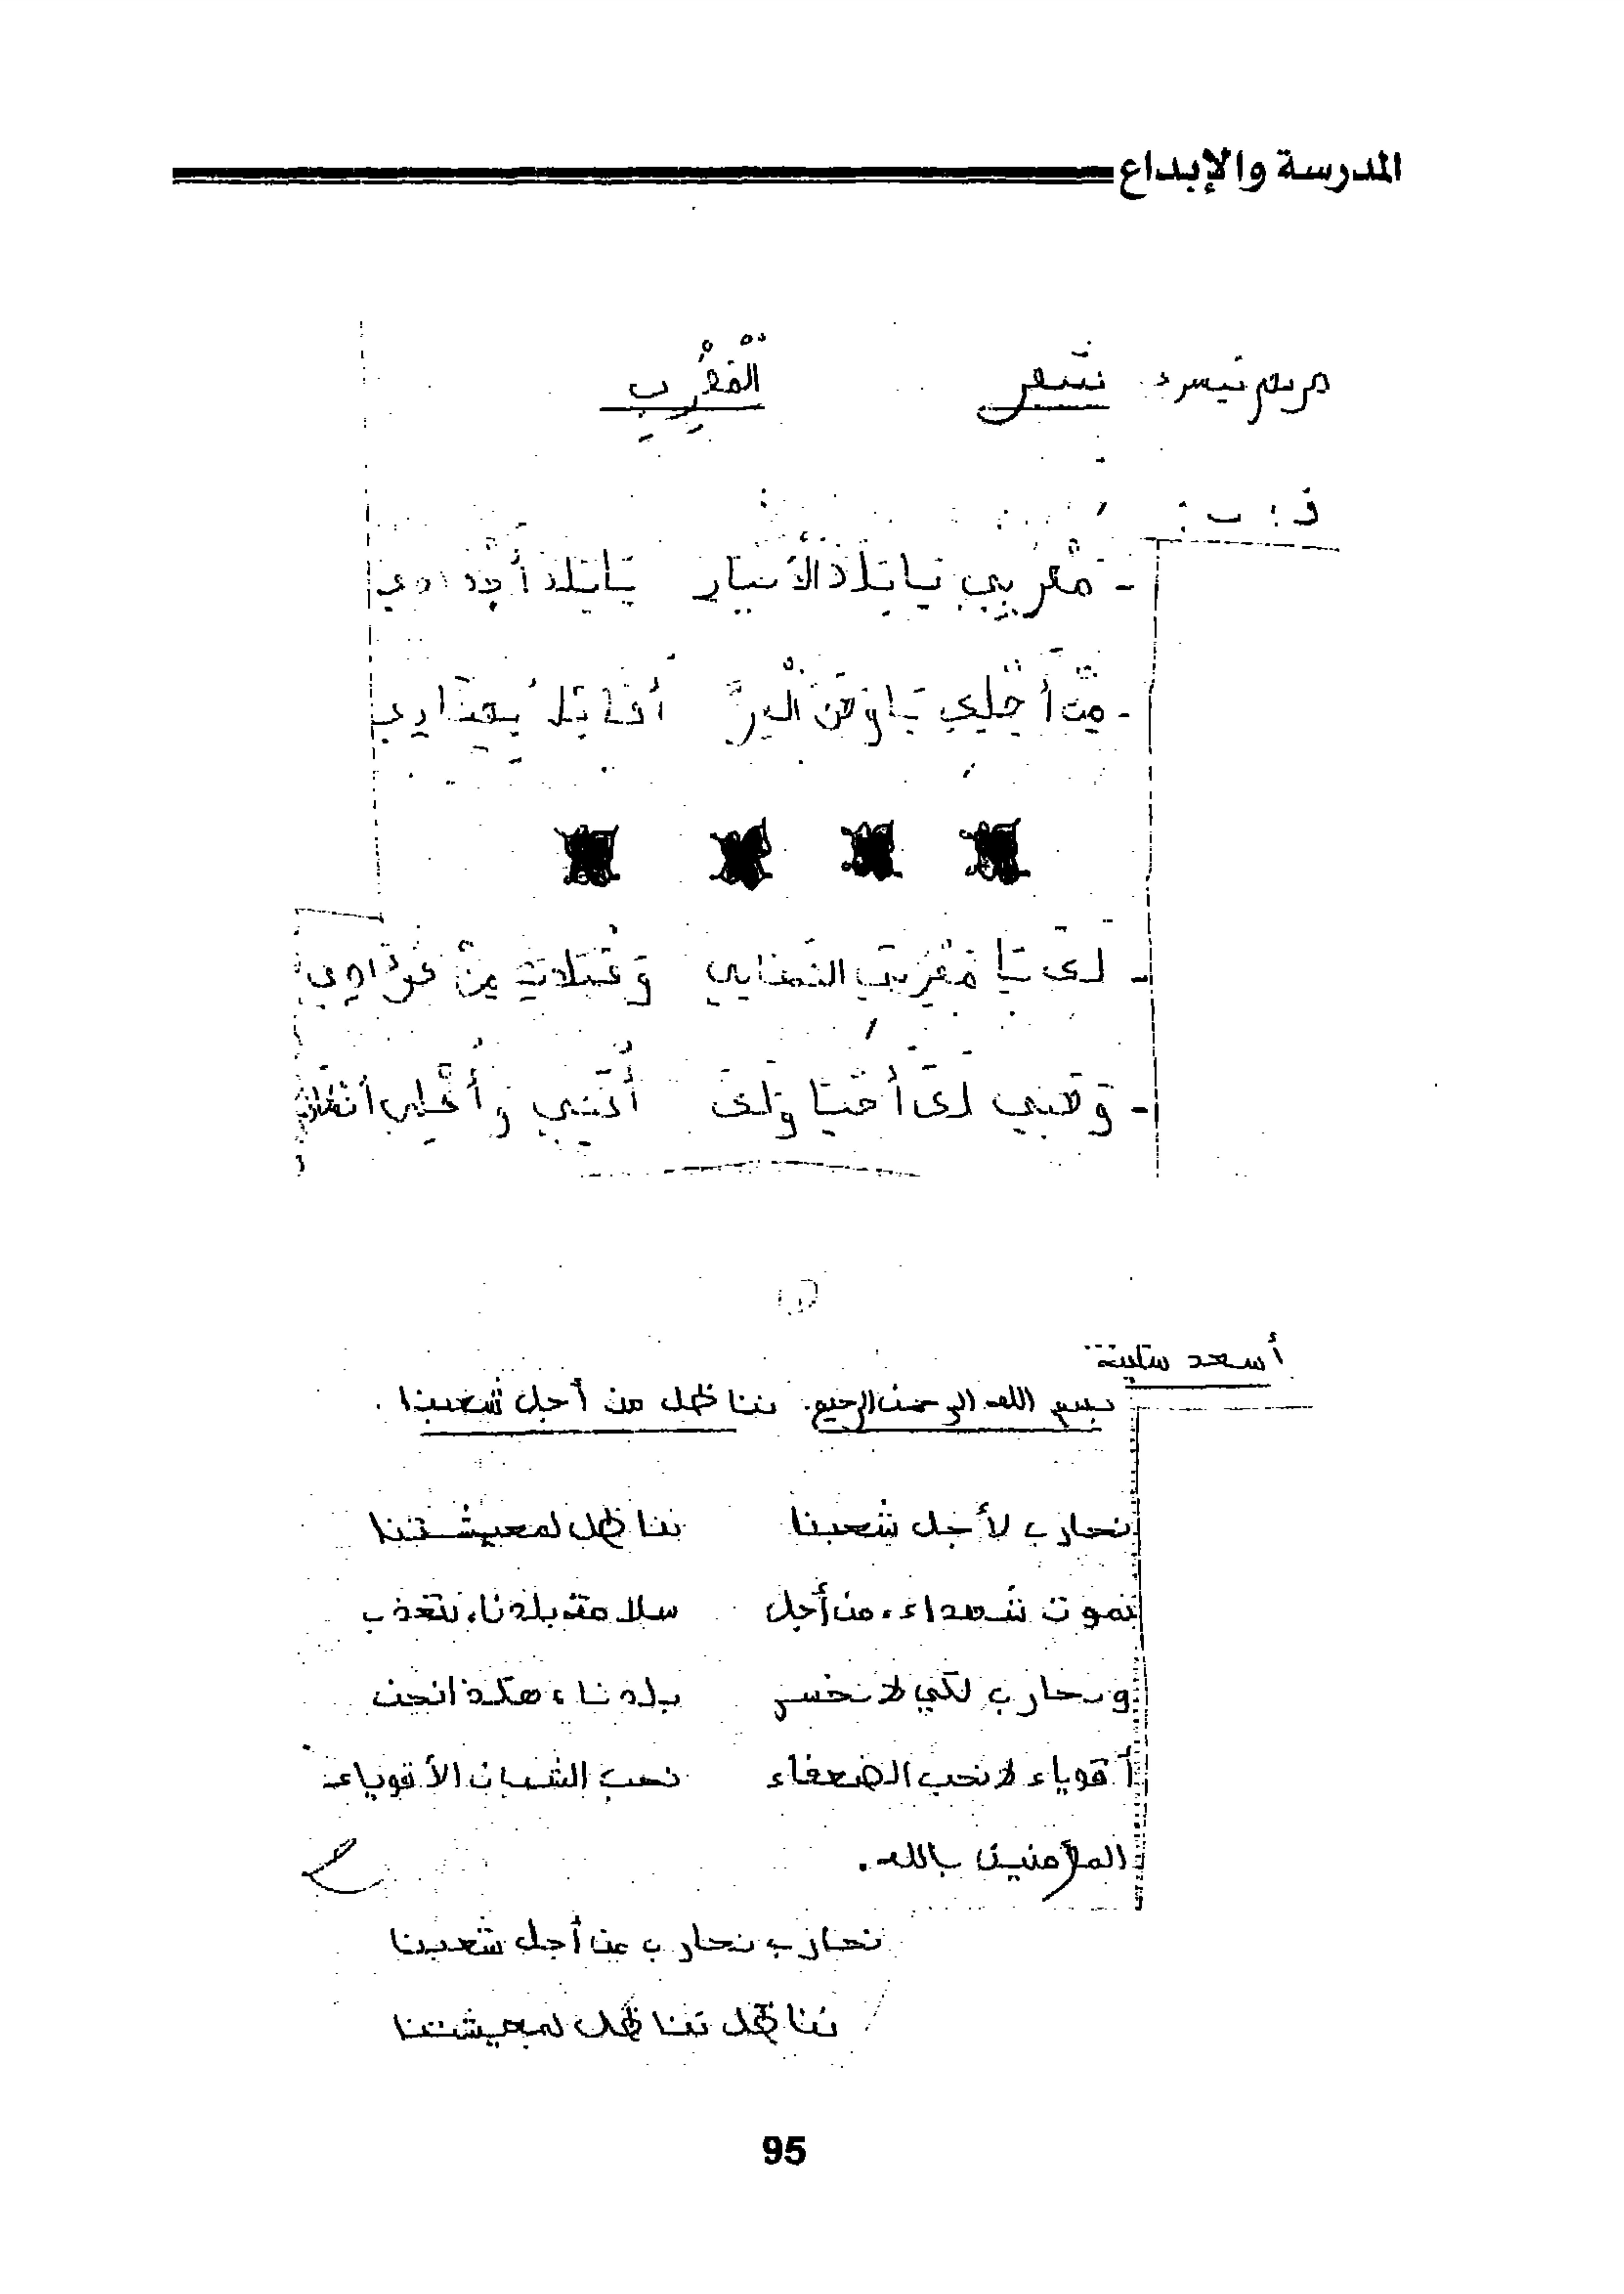 المدرسة والإبداع
مريم تيسر شعر الْمَغْرِب
ف: ب:
- مَغْرِبِي يَا بَلَدَ الْأَ يَا بَلَدَ أَجْدَادِي
- مِنْ أَجْلِكِ يَا وَطَنَ أُقَاتِلُ
- لَكَ يَا مَغْرِبَ التَحَايَا وَقُبُلَات مِنْ فُؤَادِي
- وَ لَكَ أَحْيَا وَلَكَ أُغَنِّي وَأُ
أسعد سليمة
بسم الله الرحمن الرحيم. نناظل من أجل شعبنا.
نحارب لأجل شعبنا نناظل لمعيشتنا
نموت شهداء، من أجل سلامة بلدنا، نتعذب
ونحارب لكي لا نخسر بلدنا، هكذا نحن
أقوياء لا نحب الضعفاء نحب الشبان الأقوياء
المؤمنين بالله.
نحارب نحارب من أجل شعبنا
نناظل نناظل لمعيشتنا
95